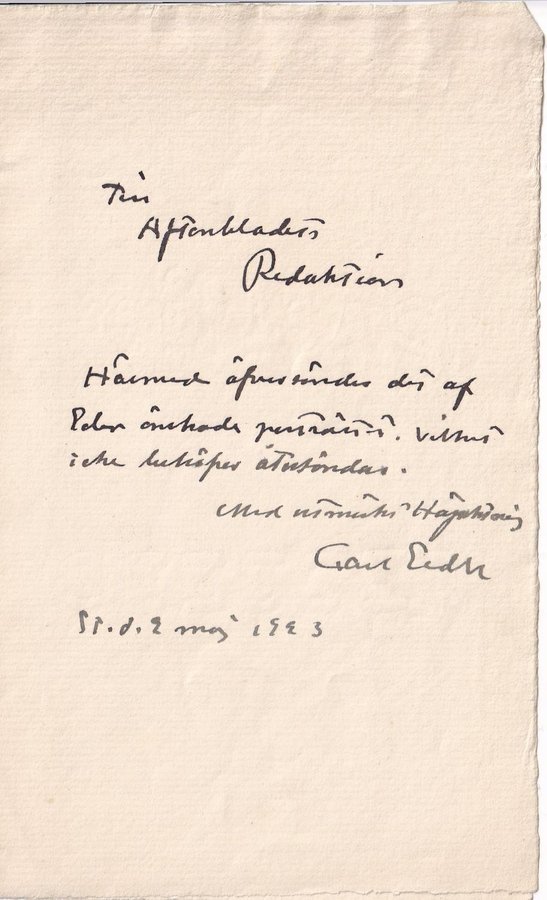 Till
Aftonbladets
Redaktion
Härmed öfversändes det af
Eder önskade porträttet. Vilket
icke behöfver återsändas.
Med utmärkt Högaktning
Carl
St. d. 2 maj 1923